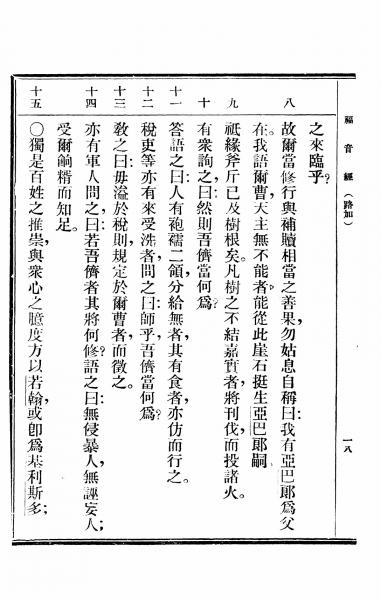 福音經（路加）
一八
之來臨乎？
八
故爾當修行與補贖相當之善果，勿姑息自稱曰：我有亞巴郎爲父
在。我語爾曹，天主無不能者，能從此崖石挺生亞巴郎嗣。
九
祇緣斧斤已及樹根矣。凡樹之不結嘉實者，將刊伐而投諸火。
十
有衆詢之曰：然則吾儕當何爲？
十一
答語之曰：人有袍襦二領，分給無者，其有食者，亦仿而行之。
十二
稅吏等亦有來受洗者，問之曰：師乎，吾儕當何爲？
十三
敎之曰：毋溢於稅則，規定於爾曹者而徵之。
十四
亦有軍人問之，曰：若吾儕者其將何修？語之曰：無侵暴人，無誣妄人；
受爾餉糈而知足。
十五
○獨是百姓之推崇，與衆心之臆度，方以若翰，或卽爲基利斯多；